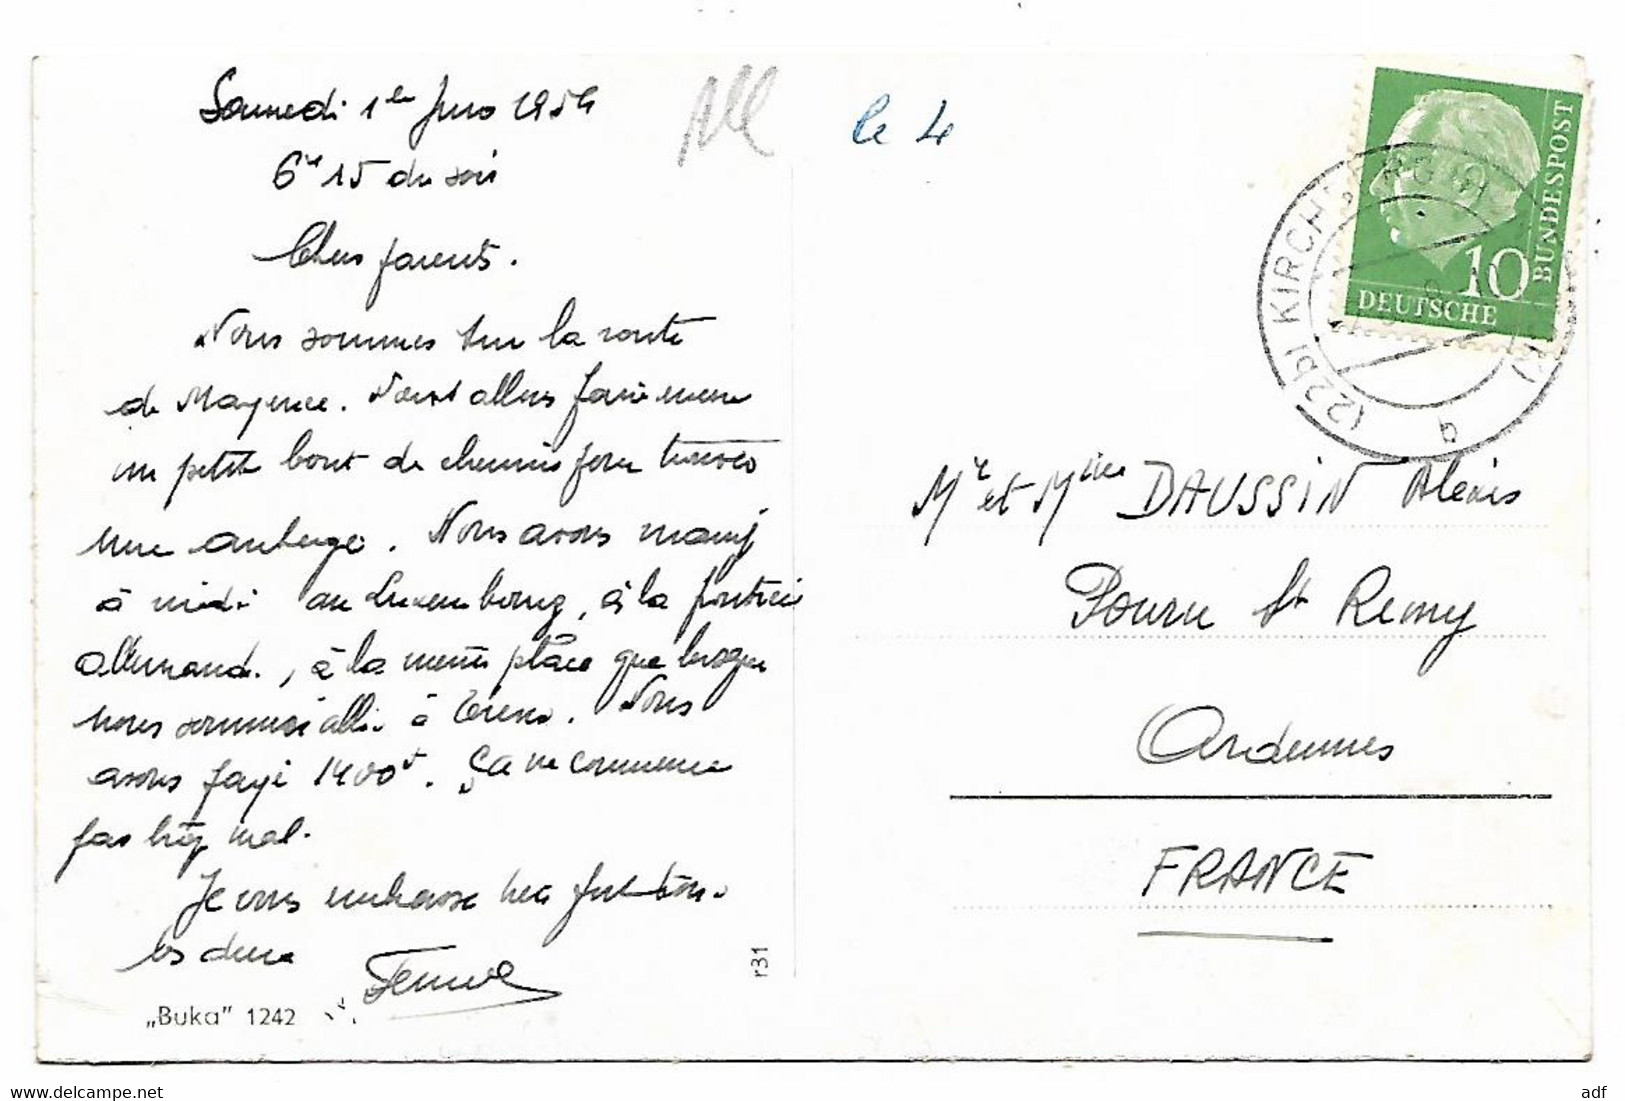 Samedi 1er 1954
6h 15 du soir
Chers parents.
Nous sommes sur la route
de Mayence. Nous allons faire encore
un petit bout de chemin pour trouver
une auberge. Nous avons mangé
à midi au Luxembourg, à la frontière
allemande, à la même place que lorsque
nous sommes allés à Trèves. Nous
avons payé 1400F. Ça ne commence
pas trop mal.
Je vous embrasse bien fort tous
les deux
"Buka" 1242
r31
All
le 4
10
DEUTSCHE
BUNDESPOST
(22b) KIRCHBERG
a
Mr et Mme DAUSSIN Alexis
Pouru St Remy
Ardennes
FRANCE
www.delcampe.net
adf